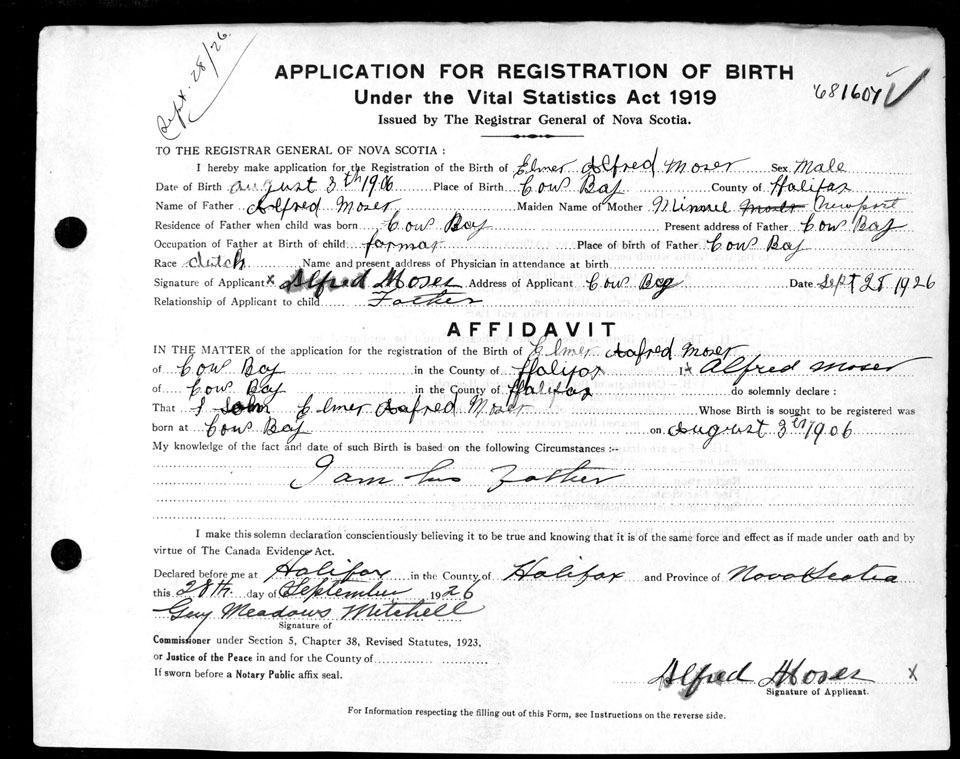 Sept. 28/26.
APPLICATION FOR REGISTRATION OF BIRTH
Under the Vital Statistics Act 1919
681607
Issued by The Registrar General of Nova Scotia.
TO THE REGISTRAR GENERAL OF NOVA SCOTIA :
I hereby make application for the Registration of the Birth of Elmer Alfred Moser Sex Male
Date of Birth august 3th 1906 Place of Birth Cow Bay County of Halifax
Name of Father Alfred Moser Maiden Name of Mother Minnie Moser Newport
Residence of Father when child was born Cow Bay Present address of Father Cow Bay
Occupation of Father at Birth of child farmar Place of birth of Father Cow Bay
Race dutch Name and present address of Physician in attendance at birth
Signature of Applicant x Alfred Moser Address of Applicant Cow Bay Date Sept 28 1926
Relationship of Applicant to child Father
AFFIDAVIT
IN THE MATTER of the application for the registration of the Birth of Elmer Aafred Moser
of Cow Bay in the County of Halifax I x Alfred Moser
of Cow Bay in the County of Halifax do solemnly declare :
That I Elmer Aafred Moser Whose Birth is sought to be registered was
born at Cow Bay on August 3th 1906
My knowledge of the fact and date of such Birth is based on the following Circumstances :—
I am his Father
I make this solemn declaration conscientiously believing it to be true and knowing that it is of the same force and effect as if made under oath and by
virtue of The Canada Evidence Act.
Declared before me at Halifax in the County of Halifax and Province of Nova Scotia
this 28th day of September 1926
Guy Meadows Mitchell
Signature of
Commissioner under Section 5, Chapter 38, Revised Statutes, 1923,
or Justice of the Peace in and for the County of
If sworn before a Notary Public affix seal.
Alfred Moser x
Signature of Applicant.
For Information respecting the filling out of this Form, see Instructions on the reverse side.